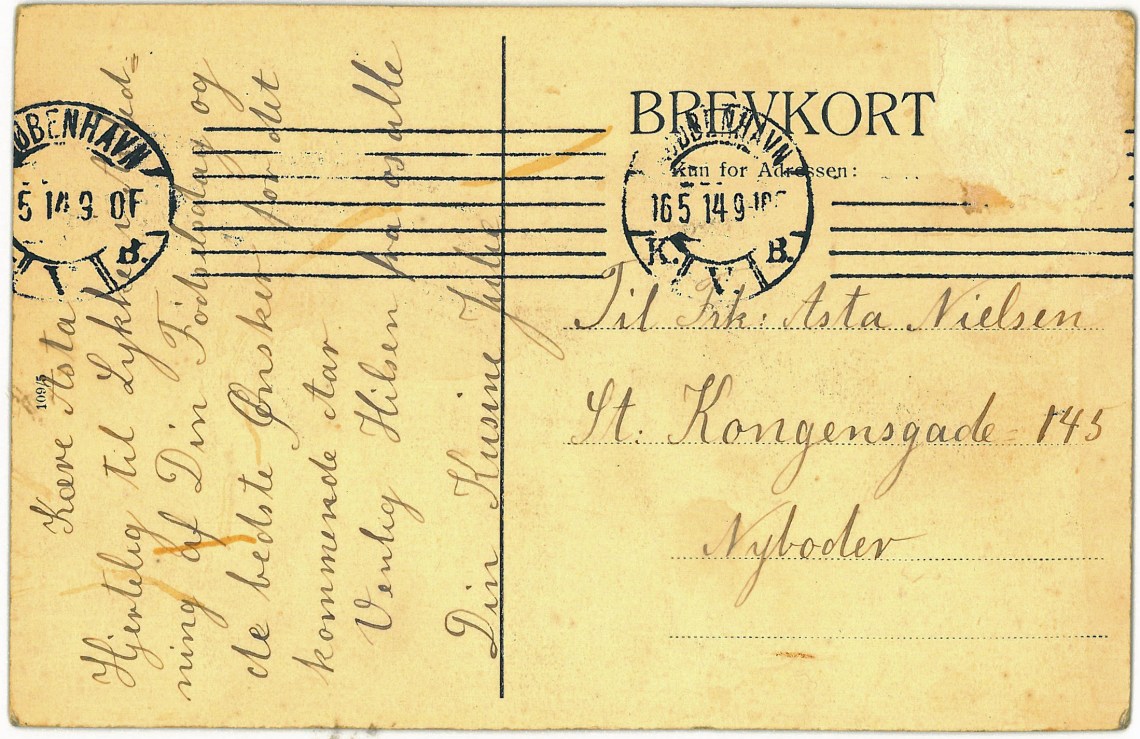 BREVKORT
Kun for Adressen:
KØBENHAVN
5 14 9. OF
B.
KØBENHAVN
16 5 14 9-10F
K. V. B.
109/5
Kære Asta
Hjertelig til Lykke i Anled=
ning af Din Födselsdag og
de bedste Ønsker for det
kommende Aar
Venlig Hilsen fra os alle
Din Kusine Julie
Til Frk: Asta Nielsen
St. Kongensgade = 145
Nyboder